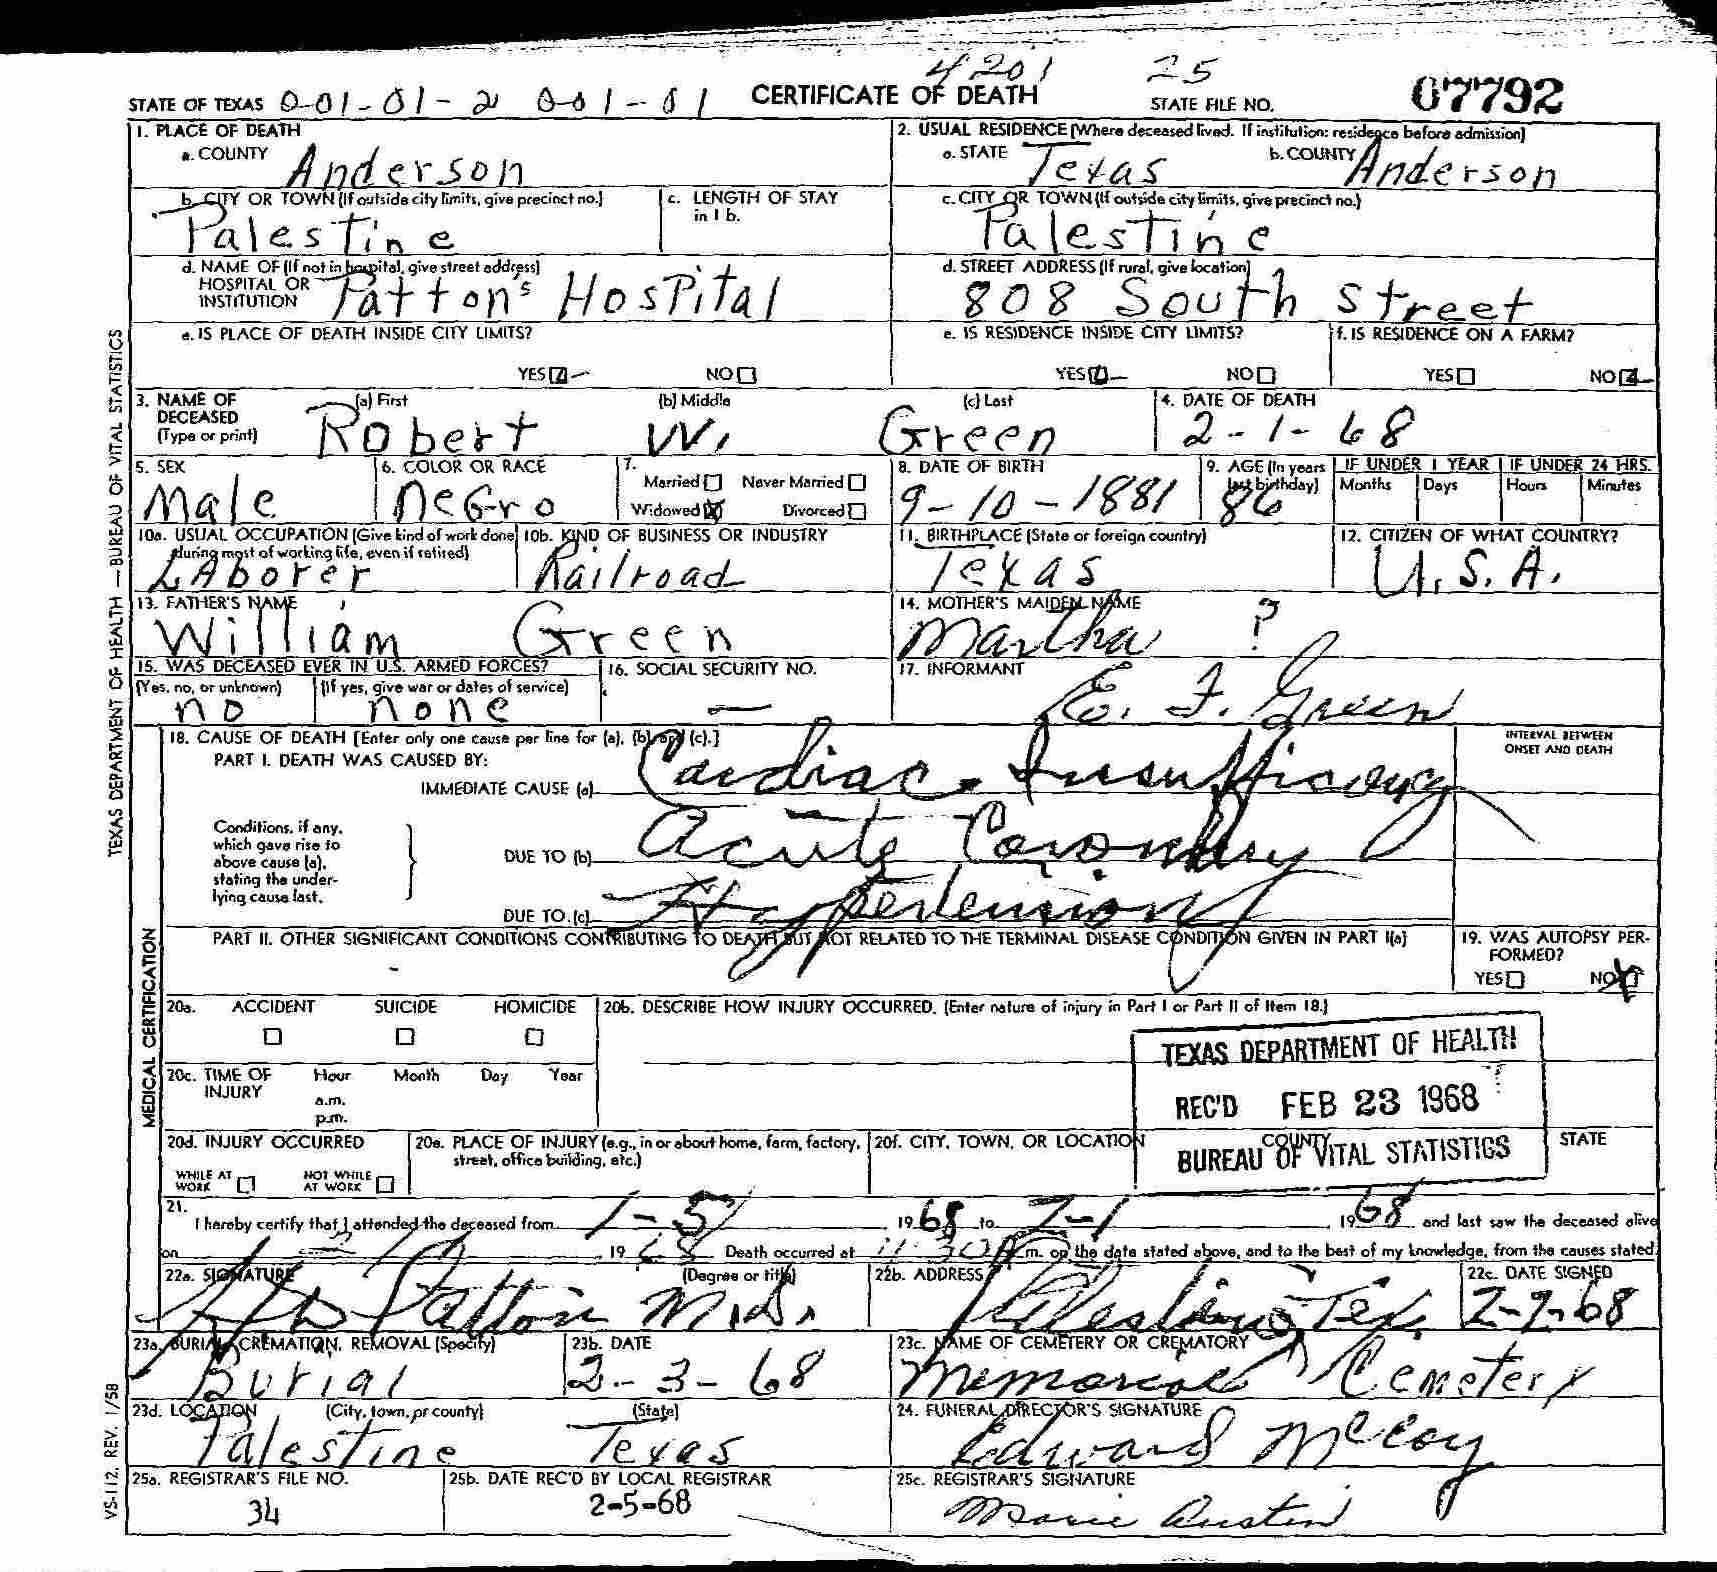 4201 25
STATE OF TEXAS 0-01-01-2 001-01 CERTIFICATE OF DEATH STATE FILE NO. 07792
1. PLACE OF DEATH
a. COUNTY Anderson
2. USUAL RESIDENCE (Where deceased lived. If institution: residence before admission)
a. STATE Texas b. COUNTY Anderson
b. CITY OR TOWN (If outside city limits, give precinct no.) Palestine
c. LENGTH OF STAY in 1 b.
c. CITY OR TOWN (If outside city limits, give precinct no.) Palestine
d. NAME OF (If not in hospital, give street address) HOSPITAL OR INSTITUTION Patton's Hospital
d. STREET ADDRESS (If rural, give location) 808 South Street
e. IS PLACE OF DEATH INSIDE CITY LIMITS? YES NO
e. IS RESIDENCE INSIDE CITY LIMITS? YES NO
f. IS RESIDENCE ON A FARM? YES NO
3. NAME OF DECEASED (Type or print) (a) First Robert (b) Middle W. (c) Last Green
4. DATE OF DEATH 2-1-68
5. SEX Male
6. COLOR OR RACE Negro
7. Married Never Married Widowed Divorced
8. DATE OF BIRTH 9-10-1881
9. AGE (In years last birthday) 86
IF UNDER 1 YEAR Months Days
IF UNDER 24 HRS. Hours Minutes
10a. USUAL OCCUPATION (Give kind of work done during most of working life, even if retired) Laborer
10b. KIND OF BUSINESS OR INDUSTRY Railroad
11. BIRTHPLACE (State or foreign country) Texas
12. CITIZEN OF WHAT COUNTRY? U.S.A.
13. FATHER'S NAME William Green
14. MOTHER'S MAIDEN NAME Martha ?
15. WAS DECEASED EVER IN U.S. ARMED FORCES?
(Yes, no, or unknown) no (If yes, give war or dates of service) none
16. SOCIAL SECURITY NO. —
17. INFORMANT E. F. Green
18. CAUSE OF DEATH [Enter only one cause per line for (a), (b), and (c).]
PART I. DEATH WAS CAUSED BY:
IMMEDIATE CAUSE (a) Cardiac Insufficiency
INTERVAL BETWEEN ONSET AND DEATH
Conditions, if any, which gave rise to above cause (a), stating the underlying cause last.
DUE TO (b) Acute Coronary
DUE TO (c) Hypertension
PART II. OTHER SIGNIFICANT CONDITIONS CONTRIBUTING TO DEATH BUT NOT RELATED TO THE TERMINAL DISEASE CONDITION GIVEN IN PART I(a)
-
19. WAS AUTOPSY PERFORMED? YES NO
20a. ACCIDENT SUICIDE HOMICIDE
20b. DESCRIBE HOW INJURY OCCURRED. (Enter nature of injury in Part I or Part II of Item 18.)
20c. TIME OF INJURY Hour a.m. p.m. Month Day Year
TEXAS DEPARTMENT OF HEALTH
REC'D FEB 23 1968
BUREAU OF VITAL STATISTICS
20d. INJURY OCCURRED WHILE AT WORK NOT WHILE AT WORK
20e. PLACE OF INJURY (e.g., in or about home, farm, factory, street, office building, etc.)
20f. CITY, TOWN, OR LOCATION COUNTY STATE
21. I hereby certify that I attended the deceased from 1-5 1968 to 2-1 1968 and last saw the deceased alive
on 1968 Death occurred at 11:30 A m. on the date stated above, and to the best of my knowledge, from the causes stated
22a. SIGNATURE (Degree or title) Patton M.D.
22b. ADDRESS Palestine, Tex.
22c. DATE SIGNED 2-2-68
23a. BURIAL, CREMATION, REMOVAL (Specify) Burial
23b. DATE 2-3-68
23c. NAME OF CEMETERY OR CREMATORY Memorial Cemetery
23d. LOCATION (City, town, or county) Palestine (State) Texas
24. FUNERAL DIRECTOR'S SIGNATURE Edward McCoy
25a. REGISTRAR'S FILE NO. 34
25b. DATE REC'D BY LOCAL REGISTRAR 2-5-68
25c. REGISTRAR'S SIGNATURE Marie Austin
TEXAS DEPARTMENT OF HEALTH — BUREAU OF VITAL STATISTICS
MEDICAL CERTIFICATION
VS-112, REV. 1/58